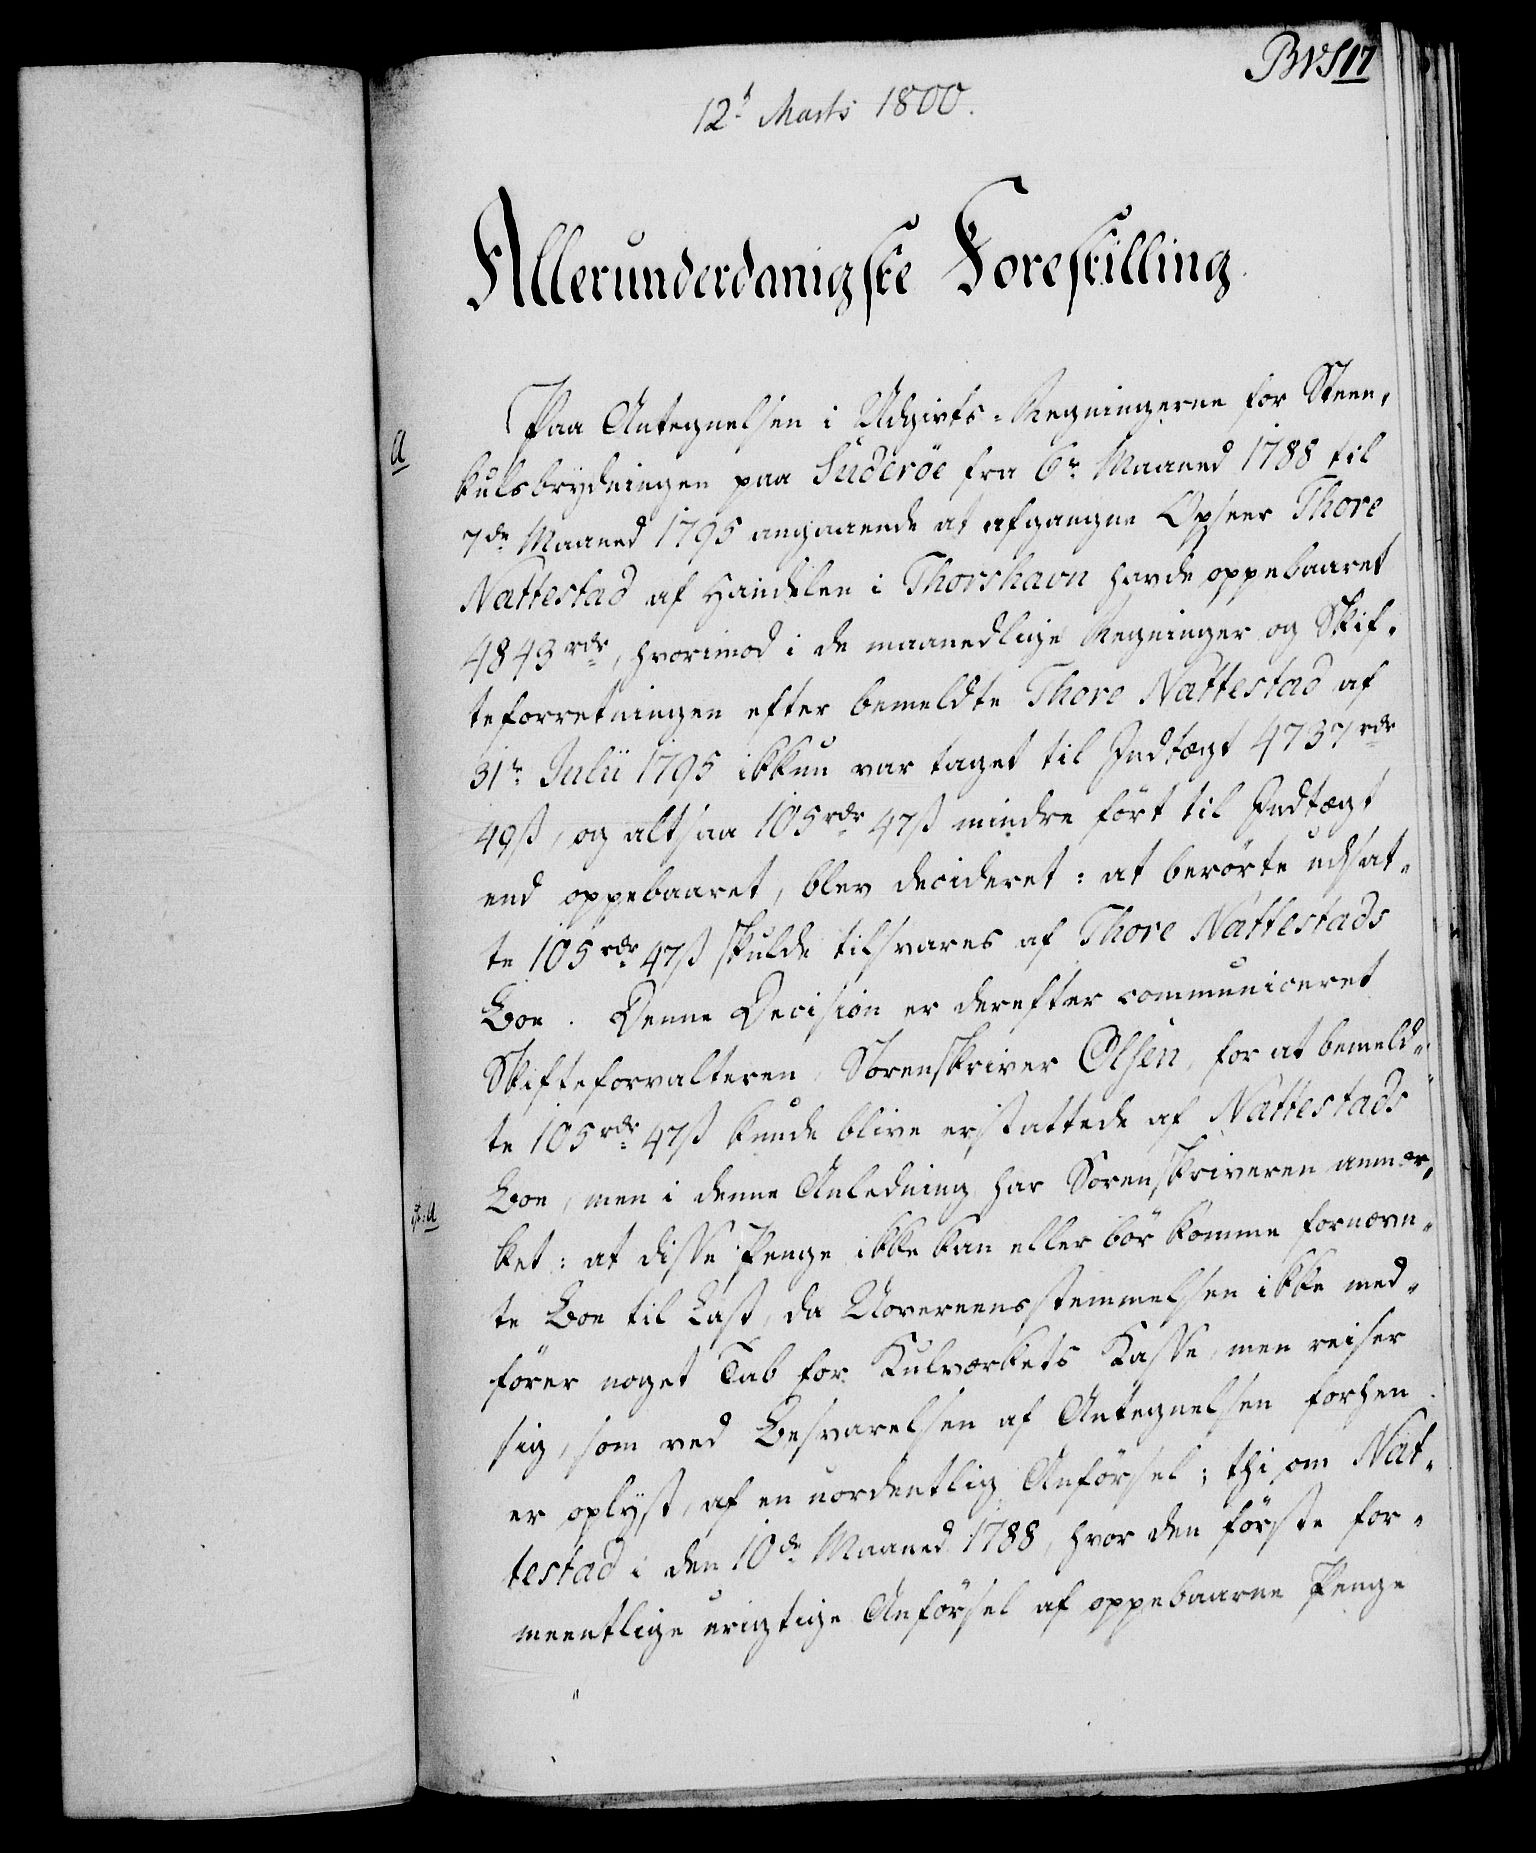 12t Marts 1800.
Allerunderdanigste Forestilling.
Paa Antegnelsen i Udgivts-Regningerne for Steen-
a
kulsbrydningen paa Suderöe fra 6te Maaned 1788 til
7de Maaned 1795 angaaende at afgangne Opseer Thore
Nattestad af Handelen i Thorshavn havde oppebaaret
4843 rdr, hvorimod i de maanedlige Regninger og Skif-
teforretningen efter bemeldte Thore Nattestad af
31te Julii 1795 ikkun var taget til Indtægt 4737 rdr
49 ß, og altsaa 105 rdr 47 ß mindre fört til Indtægt
end oppebaaret, blev decideret: at berörte udsat-
te 105 rdr 47 ß skulde tilsvares af Thore Nattestads
Boe. Denne Decision er derefter communiceret
Skifteforvalteren, Sorenskriver Olsen, for at bemeld-
te 105 rdr 47 ß kunde blive erstattede af Nattestads
Boe, men i denne Anledning har Sorenskriveren anmær-
ket: at disse Penge ikke kan eller bör komme fornævn-
te Boe til Last, da Uovereensstemmelsen ikke med-
förer noget Tab for Kulværkets Kasse, men reiser
sig, som ved Besvarelsen af Antegnelsen forhen
er oplyst, af en uordentlig Anförsel; thi om Nat-
testad i den 10de Maaned 1788, hvor den förste for-
meentlige urigtige Anförsel af oppebaarne Penge